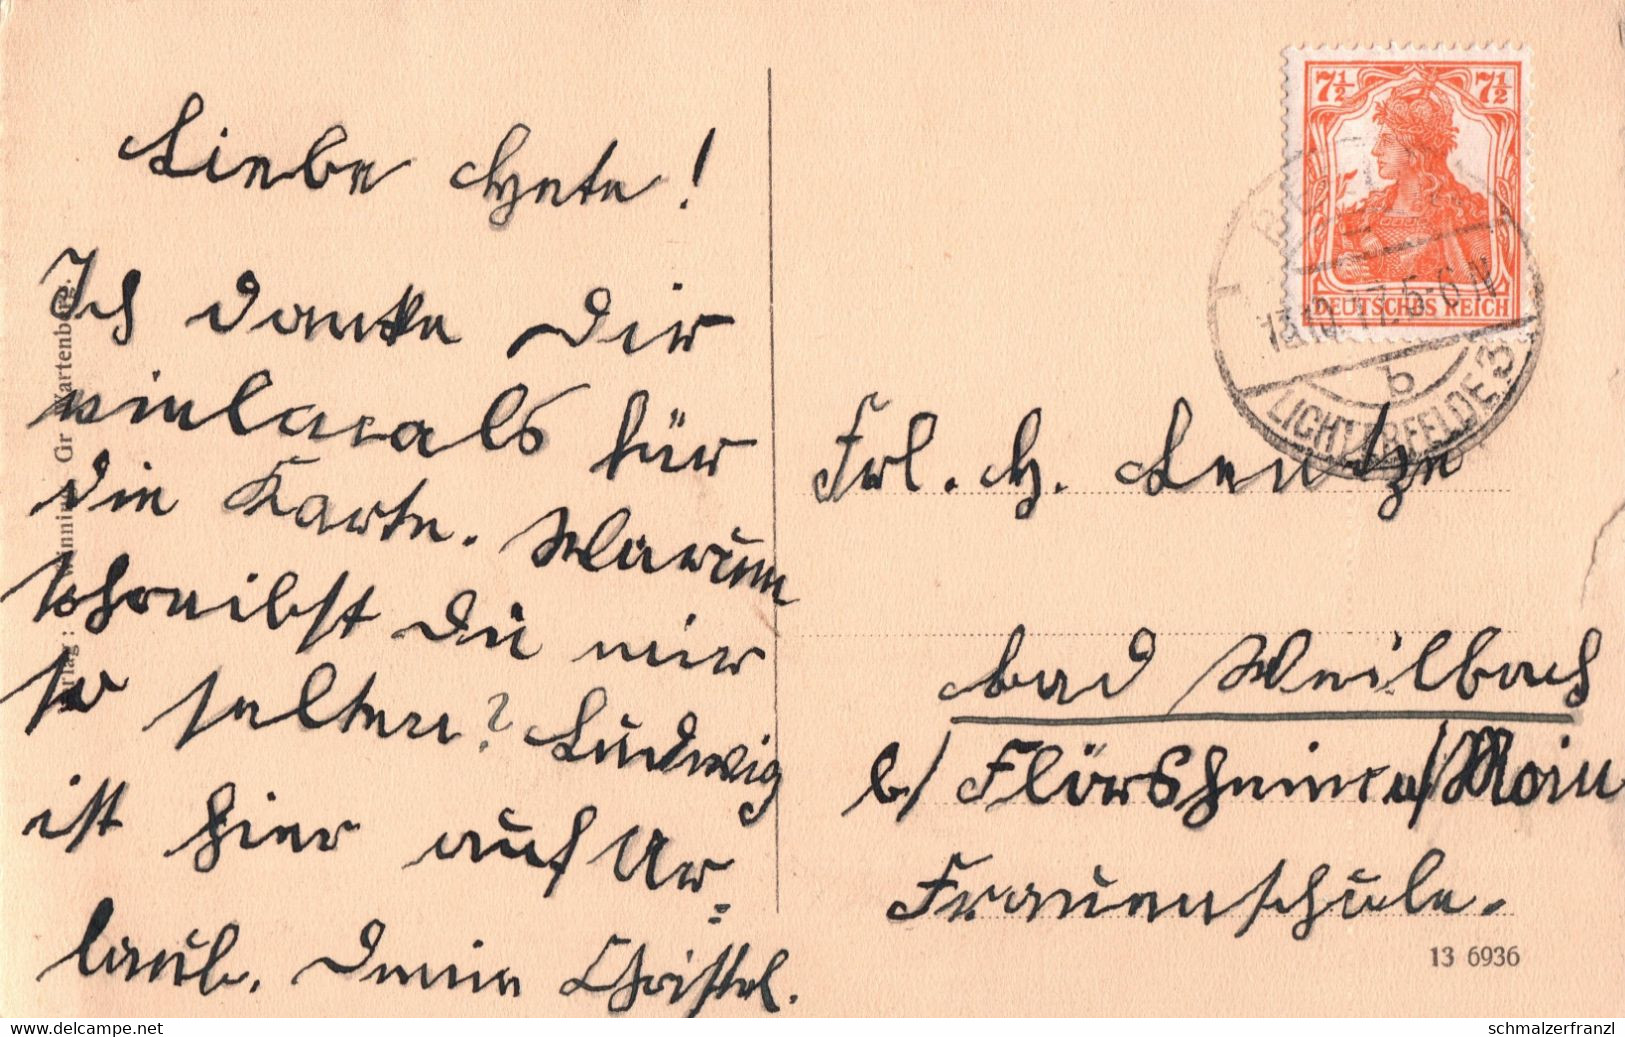 Liebe Hete!
Ich danke Dir
vielmals für
die Karte. Warum
schreibst Du mir
so selten? Ludwig
ist hier auf Ur=
laub. Deine Christel.
Gr Wartenberg.
7½ 7½
DEUTSCHES REICH
17.5-6N
b
LICHTERFELDE 3
Frl. H. Lentze
Bad Weilbach
b/ Flörsheim a/Main
Frauenschule.
13 6936
schmalzerfranzl
www.delcampe.net